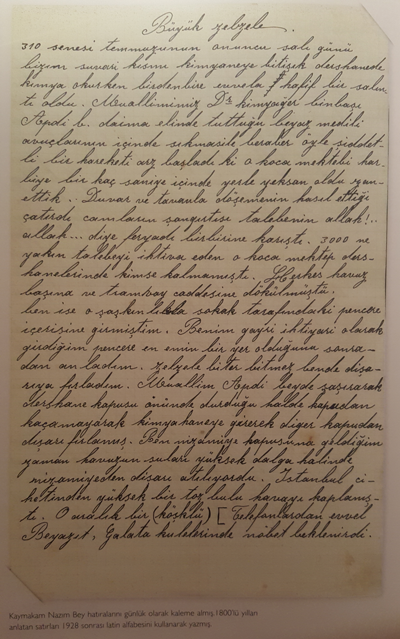 Büyük zelzele.
310 senesi temmuzunun onuncu salı günü
bizim suvari kısmı kimyaneye bitişik dershanede
kimya okurken birdenbire evvela hafif bir salın
tı oldu. Muallimimiz Dr kimyağer binbaşı
Apdi b. daima elinde tuttuğu beyaz medili
avuçlarının içinde sıkmasile beraber öyle şiddet-
li bir hareketi arz başladı ki o koca mektebi har-
biye bir kaç saniye içinde yerle yeksan oldu zan-
ettik. Duvar ve tavanla döşemenin hasıl ettiği
çatırdı camların şangırtısı talebenin allah!..
allah... diye feryadı birbirine karıştı. 3000 ne
yakın talebeyi ihtiva eden o koca mektep ders-
hanelerinde kimse kalmamıştı. Herkes havuz
başına ve tramvay caddesine dökülmüştü.
ben ise o şaşkınlıkla sokak tarafındaki pencere
içerisine girmiştim. Benim gayri ihtiyari olarak
girdiğim pencere en emin bir yer olduğunu sonra-
dan anladım. zelzele biter bitmez bende dışa-
rıya fırladım. Muallim Apdi beyde şaşırarak
dershane kapusu önünde durduğu halde kapudan
kaçamayarak kimyahaneye girerek diğer kapudan
dışarı fırlamış. Ben nizamiye kapusuna geldiğim
zaman havuzun suları yüksek dalga halinde
nizamiyeden dışarı atılıyordu. İstanbul ci-
hetinden yüksek bir toz bulu havaya kaplamış-
tı. O aralık bir (köşklü) [Telefonlardan evvel
Beyazıt, Galata kulelerinde nöbet beklenirdi.
Kaymakam Nazım Bey hatıralarını günlük olarak kaleme almış.1800'lü yılları
anlatan satırları 1928 sonrası latin alfabesini kullanarak yazmış.